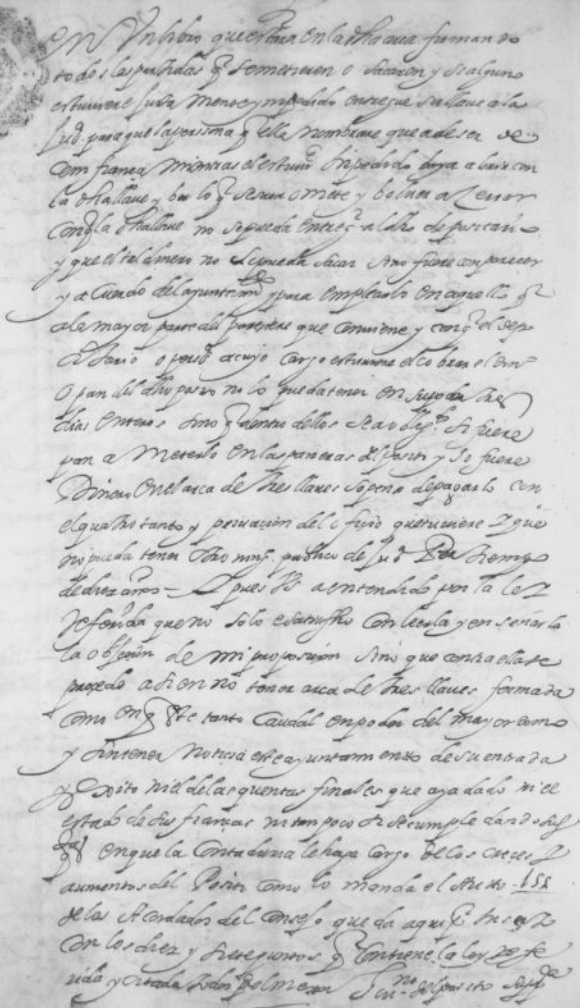 Un libro que estara en la dha arca firmando
todas las partidas q se metieren o sacaren y si alguno
estuviere justa mente ympedido entregue su llave a la
Jud para que la persona q ella nombrare que a de ser de
confiança mientras el estuviere impedido baya a abrir con
la dha llave y bea lo q se saca o mete y buelva a cerrar
con q la dha llave no se pueda entregar al dho depositario
y que el tal dinero no se pueda sacar sino fuere con parecer
y acuerdo del ayuntamio y para emplearlo en aquello q
a la mayor parte del pareciere que conviene y con q el depo
sitario o persa a cuyo cargo estuviere el cobrar el dino
o pan del dho posito no lo pueda tener en su poder tres
dias enteros sino q dentro dellos sea obligdo si fuere
pan a meterlo en las paneras del posito y si fuere
Dinero en el arca de tres llaves so pena de pagarlo con
el quatro tanto y privacion del oficio que tuviere y que
no pueda tener otro ning publico de Jud Por tiempo
de diez años = Y pues VS a entendido por la ley
Referida que no solo e satisfho con leerla y enseñarla
la obgcion de mi proposicion sino que contra ella se
procede asi en no tener arca de tres llaves formada
como en q este tanto caudal en poder del mayordomo
y sin tener noticia este ayuntamiento de su entrada
y exito ni de las quentas finales que aya dado ni el
estado de sus fianças ni tan poco si se cumple
en que la Contaduria le haga cargo de los creces y
aumentos del Posito como lo manda el Auto 155
de los Acordados del Consejo que da aqui
con los diez y siete puntos q contiene la ley Refe
rida y citada